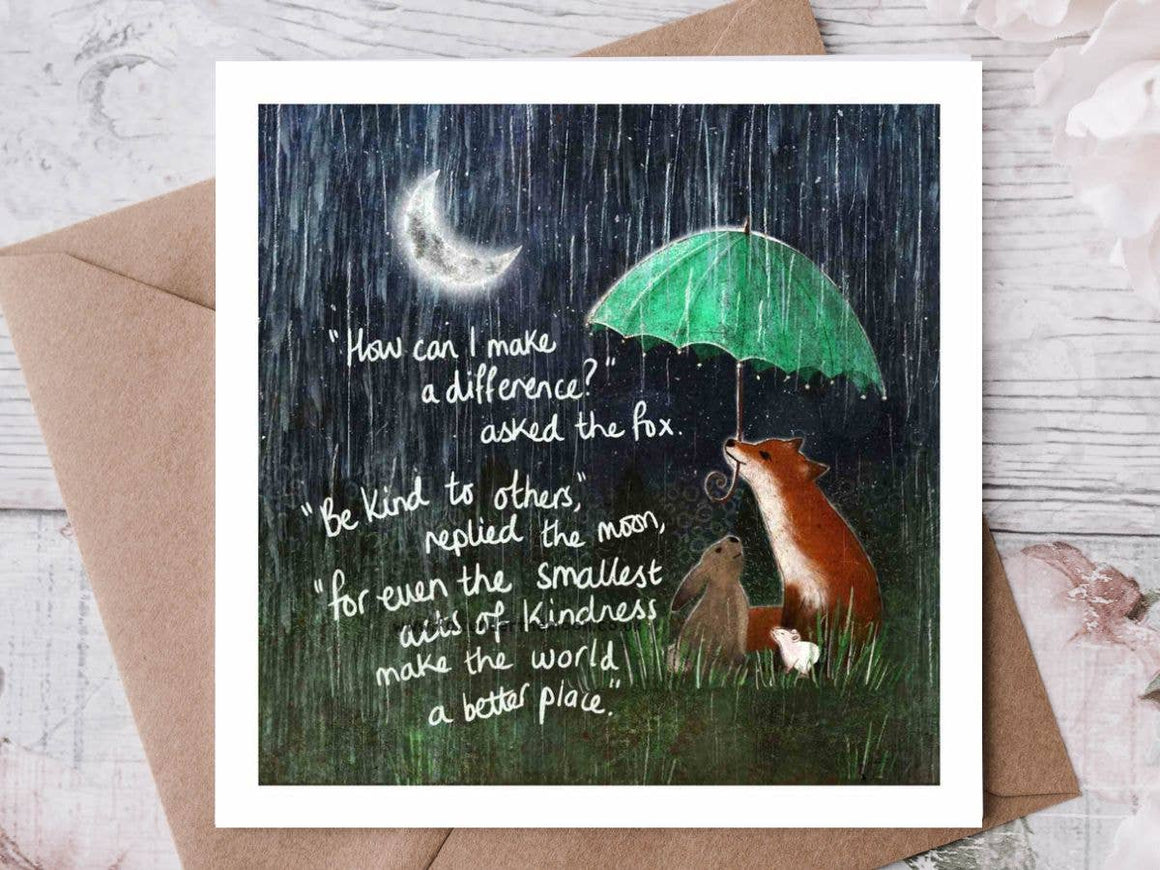 "How can I make
a difference?"
asked the fox.
"Be kind to others,"
replied the moon,
"for even the smallest
acts of kindness
make the world
a better place."